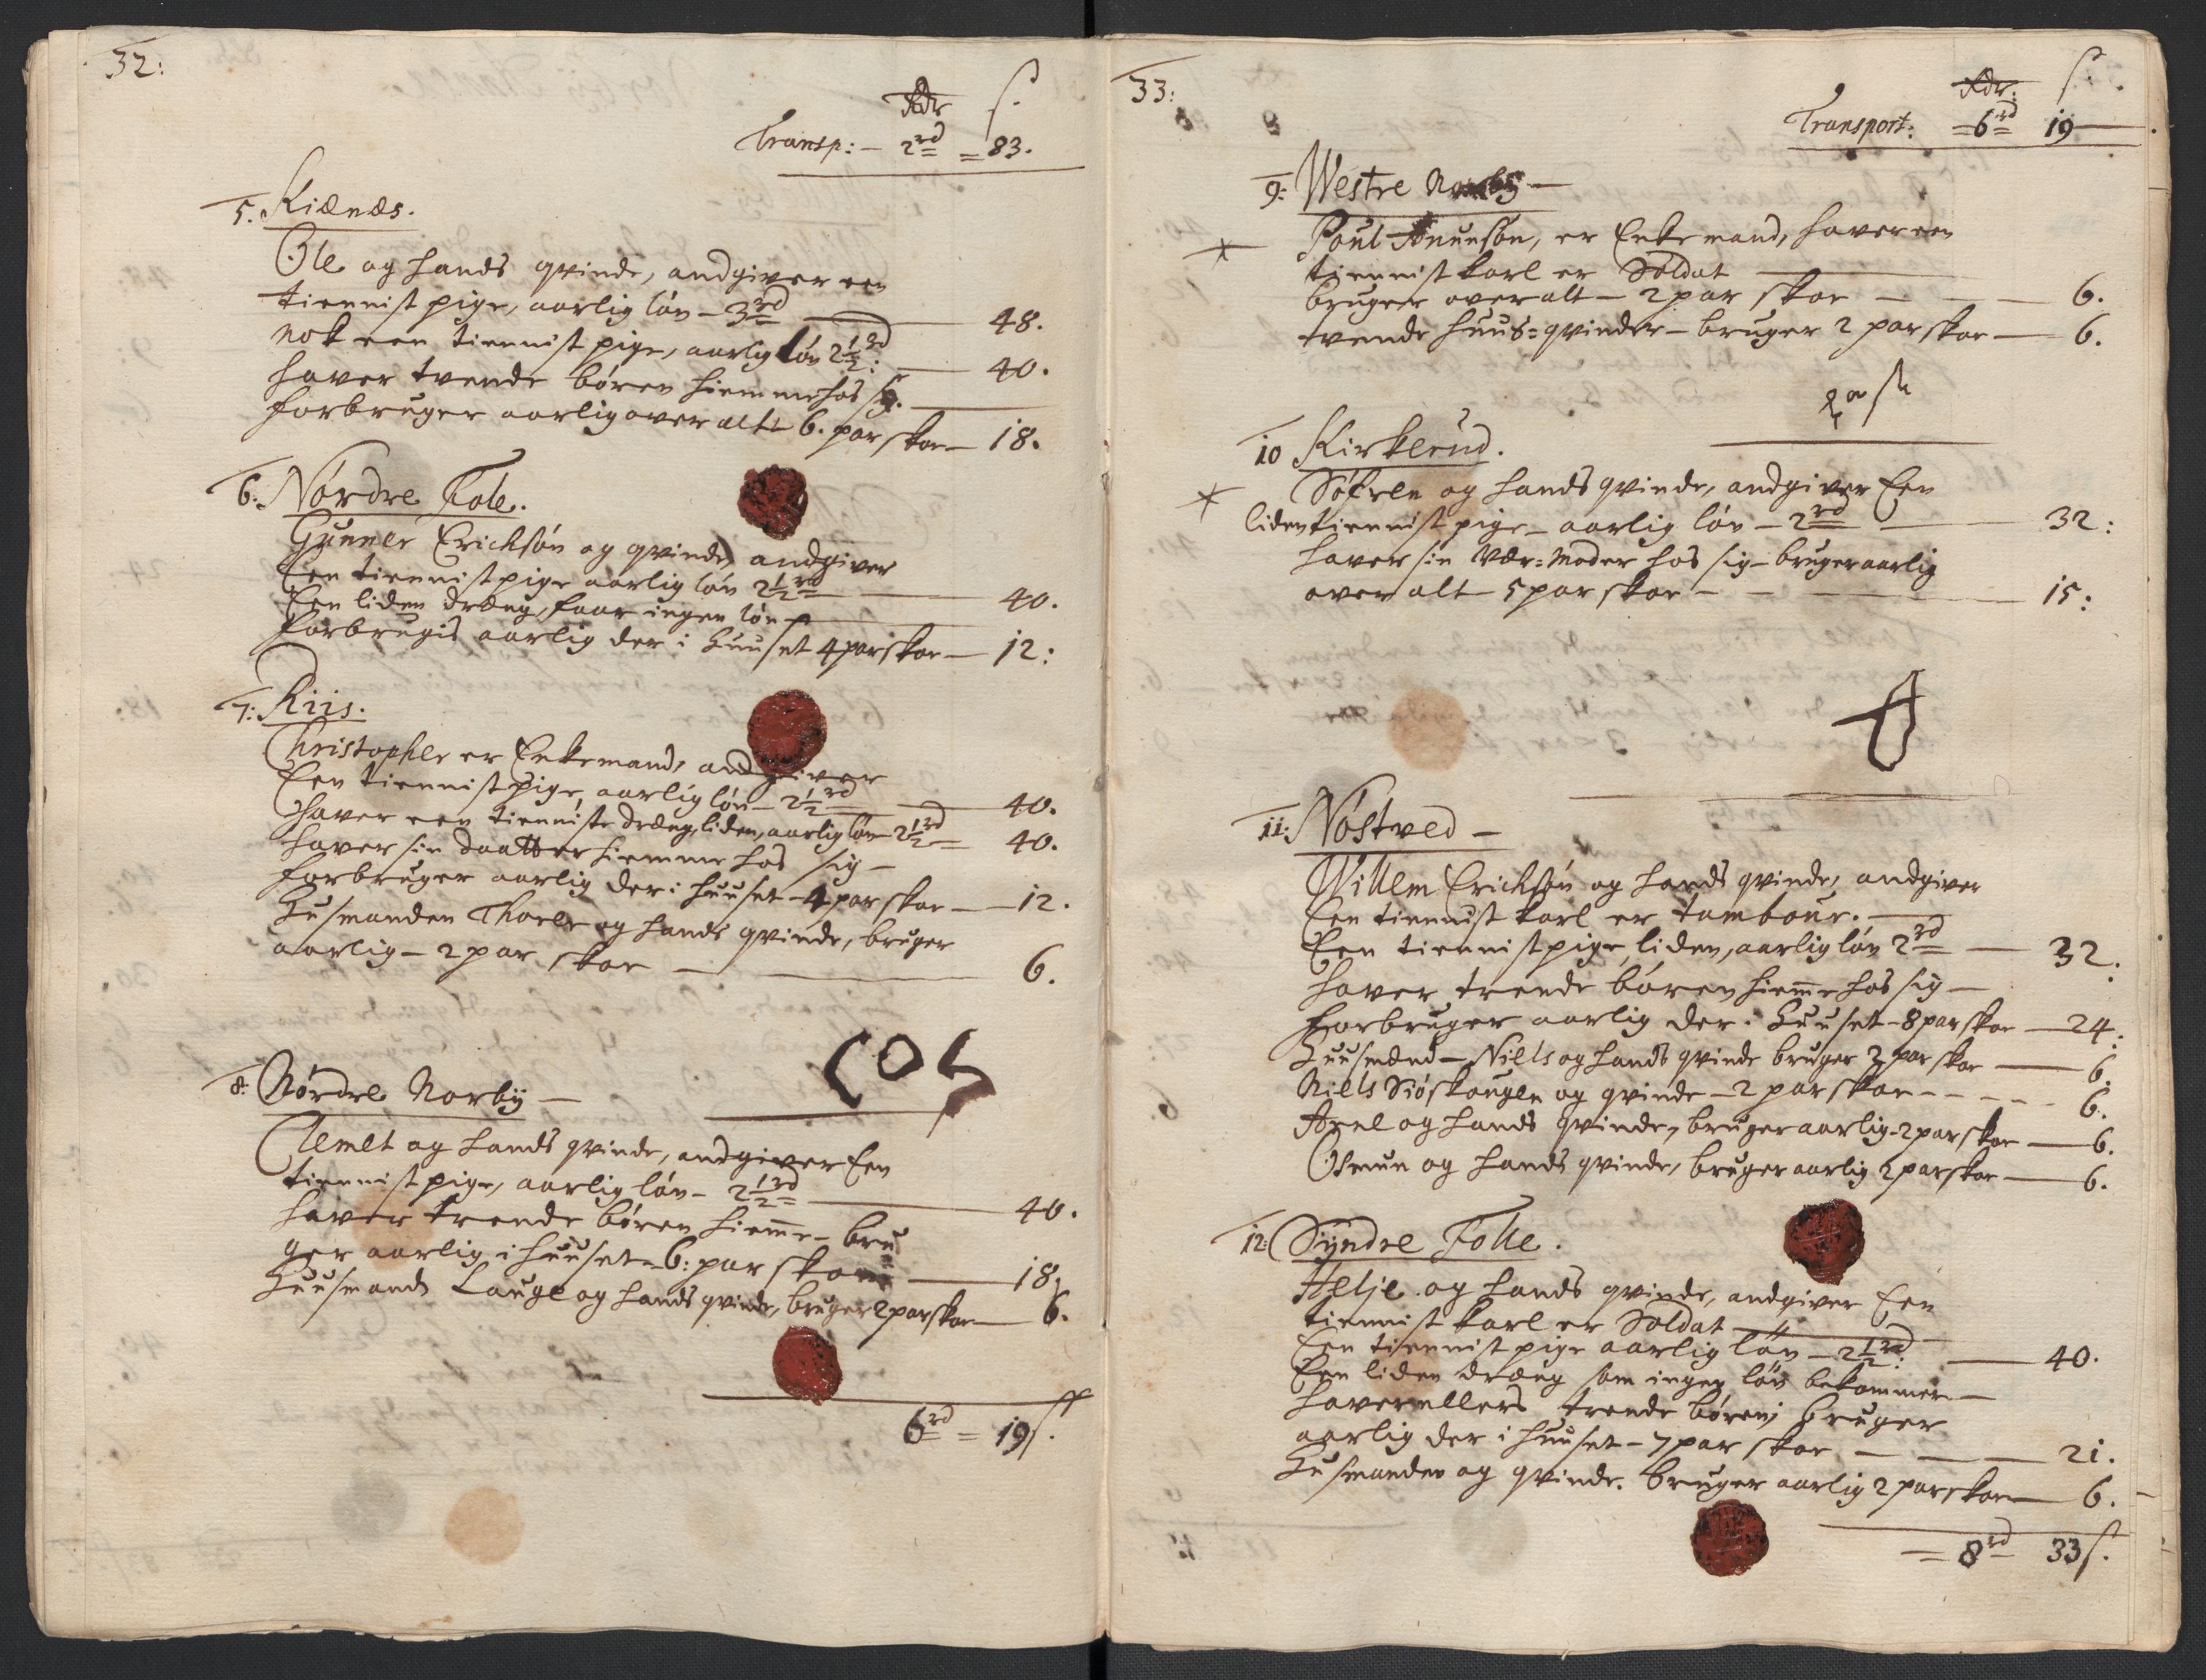 32:
Rdr s.
Transp: – 2 rd = 83.
5. Kiænæs.
Ole og hands qvinde, andgiver een
tiennist pige, aarlig løn – 3 rd — 48.
nok een tiennist pige, aarlig løn 2½ rd: — 40.
haver tvende børen hiemme hos sig. —
forbruger aarlig over alt 6. par skoe – 18.
6. Nordre Fole.
Gunner Erichsøn og qvinde, andgiver
Een tiennist pige aarlig løn 2½ rd — 40.
Een liden dræng, faar ingen løn —
forbrugis aarlig der i Huuset 4 par skoe – 12:
7: Riis.
Christopher er Enkemand, andgiver
Een tiennist pige, aarlig løn – 2½ rd — 40.
Haver een tienniste dræng, liden, aarlig løn 2½ rd = 40.
haver sin daatter hiemme hos sig –
forbruger aarlig der i huuset – 4 par skoe — 12.
Husmanden Thore og hands qvinde, bruger
aarlig – 2 par skoe — 6.
8: Nordre Norbÿ —
Clemet og hands qvinde, andgiver Een
tiennist pige, aarlig løn – 2½ rd — 40.
haver trende børen hiem̄e – bru
ger aarlig i huuset – 6: par skoe — 18.
Huusmand Lauge og hands qvinde, bruger 2 par skoe — 6.
6 rd = 19 s.
33:
Rdr: s.
Transport: = 6 rd 19 —
9: Westre Norbÿ —
Poul Anunsøn, er Enkemand, haver een
tiennist karl er Soldat —
bruger over alt – 2 par skoe — 6.
tvende huus=qvinder – bruger 2 par skoe — 6.
10 Kirkerud.
Søfren og hands qvinde, andgiver Een
liden tiennist pige – aarlig løn – 2 rd — 32:
haver sin Vær=Moder hos sig – bruger aarlig
over alt – 5 par skoe — 15:
11: Nøstved —
Willem Erichsøn og hands qvinde, andgiver
Een tiennist karl er tambour. —
Een tiennist pige, liden, aarlig løn 2 rd — 32.
haver trende børen hiem̄e hos sig —
forbruger aarlig der i Huuset – 8 par skoe — 24:
Huusmænd – Niels og hands qvinde bruger 2 par skoe — 6.
Niels Siøskougen og qvinde – 2 par skoe — 6.
Arne og hands qvinde, bruger aarlig – 2 par skoe — 6.
Osmun og hands qvinde, bruger aarlig 2 par skoe — 6.
12: Syndre Folle.
Helje og hands qvinde, andgiver Een
tiennist karl er Soldat —
Een tiennist pige aarlig løn – 2½ rd: — 40.
Een liden dræng som ingen løn bekommer —
haver ellers trende børen; bruger
aarlig der i huuset – 7 par skoe — 21.
Husmanden og qvinde. bruger aarlig 2 par skoe — 6.
= 8 rd 33 s.